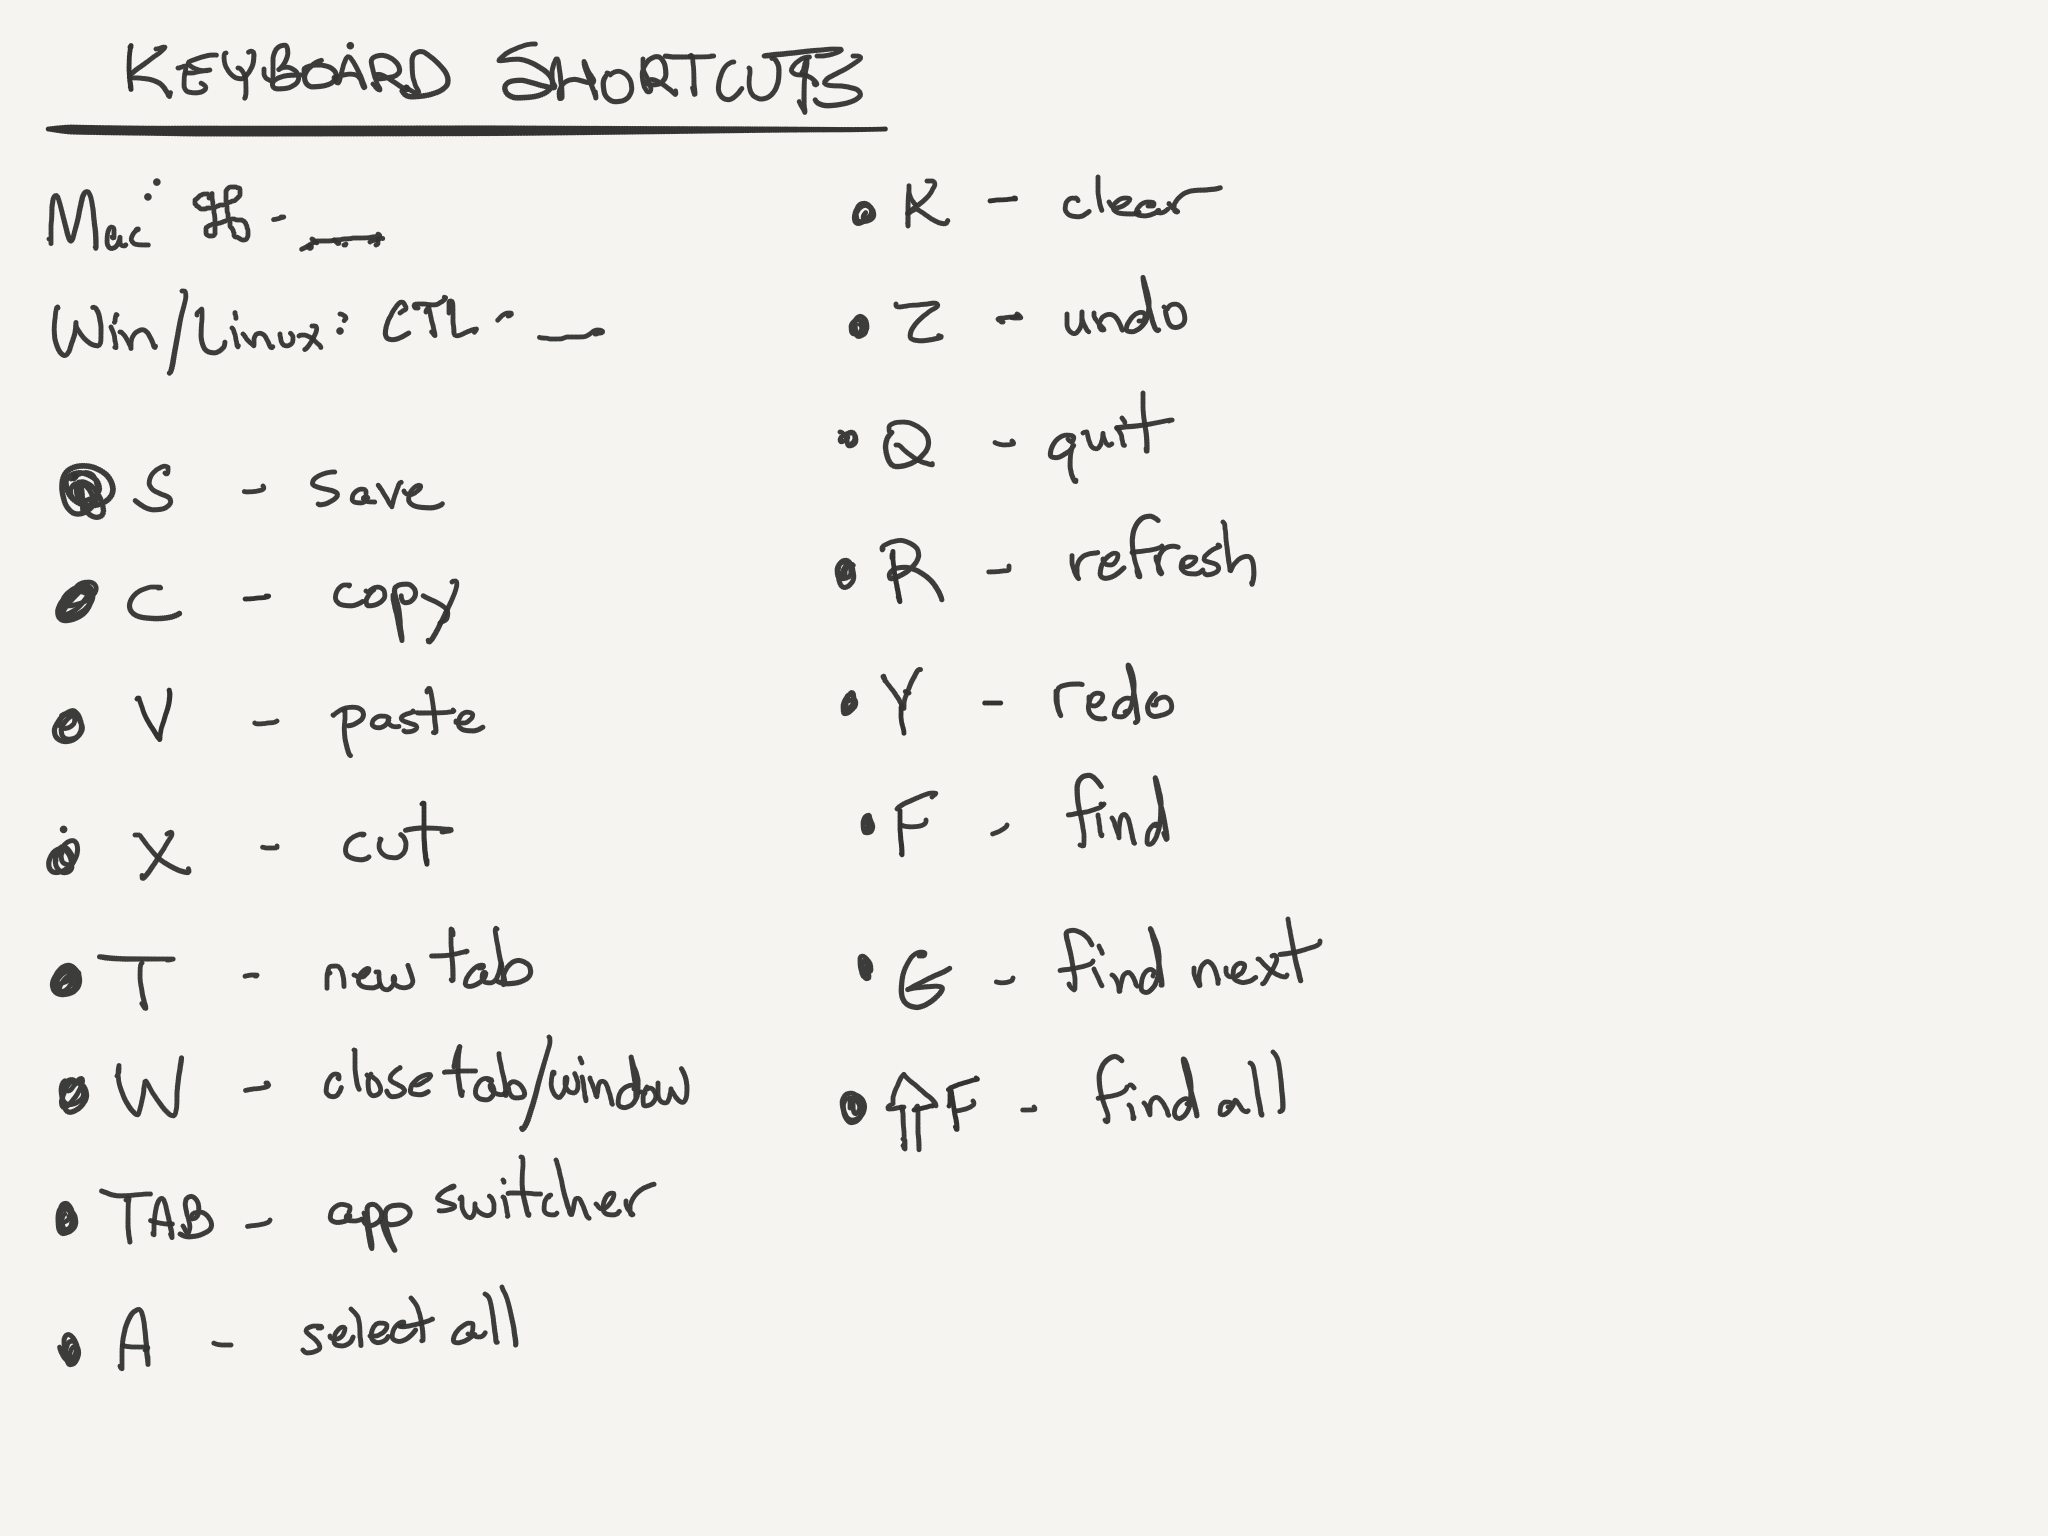 KEYBOARD SHORTCUTS
Mac: ⌘ - __
Win/Linux: CTL - __
• S - save
• C - copy
• V - paste
• X - cut
• T - new tab
• W - close tab/window
• TAB - app switcher
• A - select all
• K - clear
• Z - undo
• Q - quit
• R - refresh
• Y - redo
• F - find
• G - find next
• ⇧F - find all